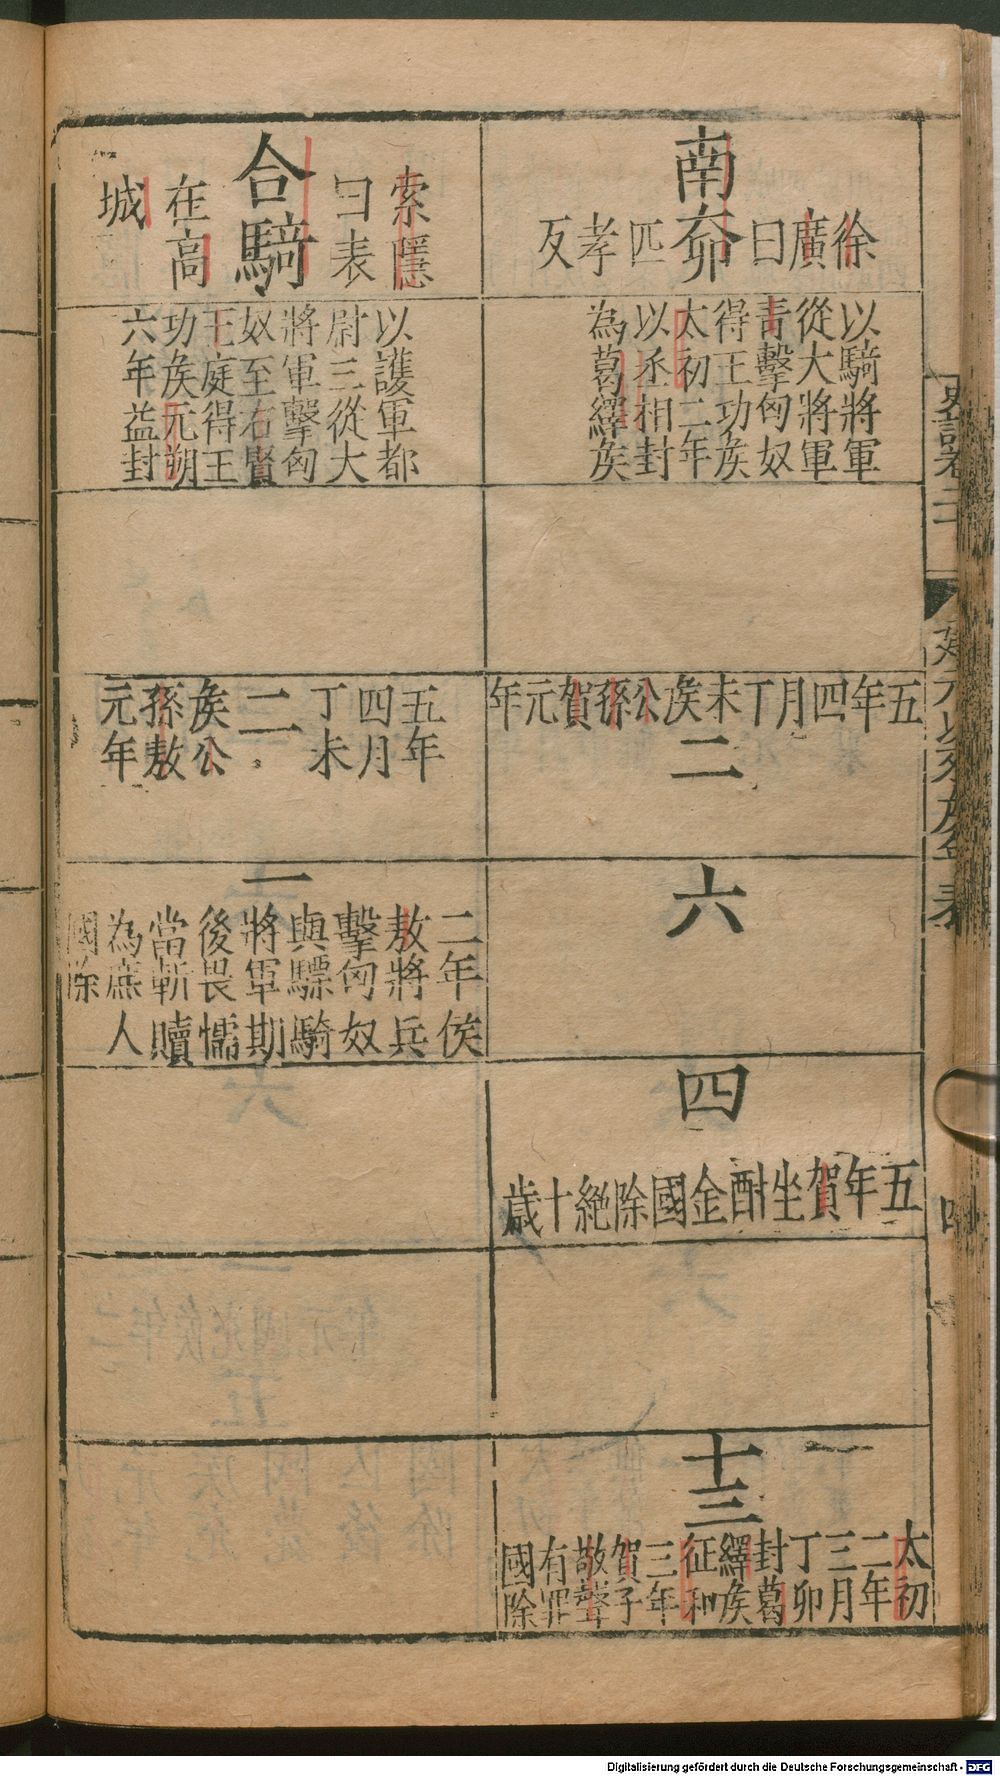 南奅
徐
廣
曰
匹
孝
反
以騎將軍
從大將軍
青擊匈奴
得王功矦
太初二年
以丞相封
為葛繹矦
五年四月丁未矦公孫賀元年
二
六
四
五年賀坐酎金國除絕十歲
十三
太初
二年
三月
丁卯
封葛
繹矦
征和
三年
賀子
敬聲
有罪
國除
合騎
索隱
曰表
在高
城
以護軍都
尉三從大
將軍擊匈
奴至右賢
王庭得王
功矦元朔
六年益封
五年
四月
丁未
二
矦公
孫敖
元年
一
二年侯
敖將兵
擊匈奴
與驃騎
將軍期
後畏懦
當斬贖
為庶人
國除
史記卷二十
建元以來矦年表
四
Digitalisierung gefördert durch die Deutsche Forschungsgemeinschaft - DFG